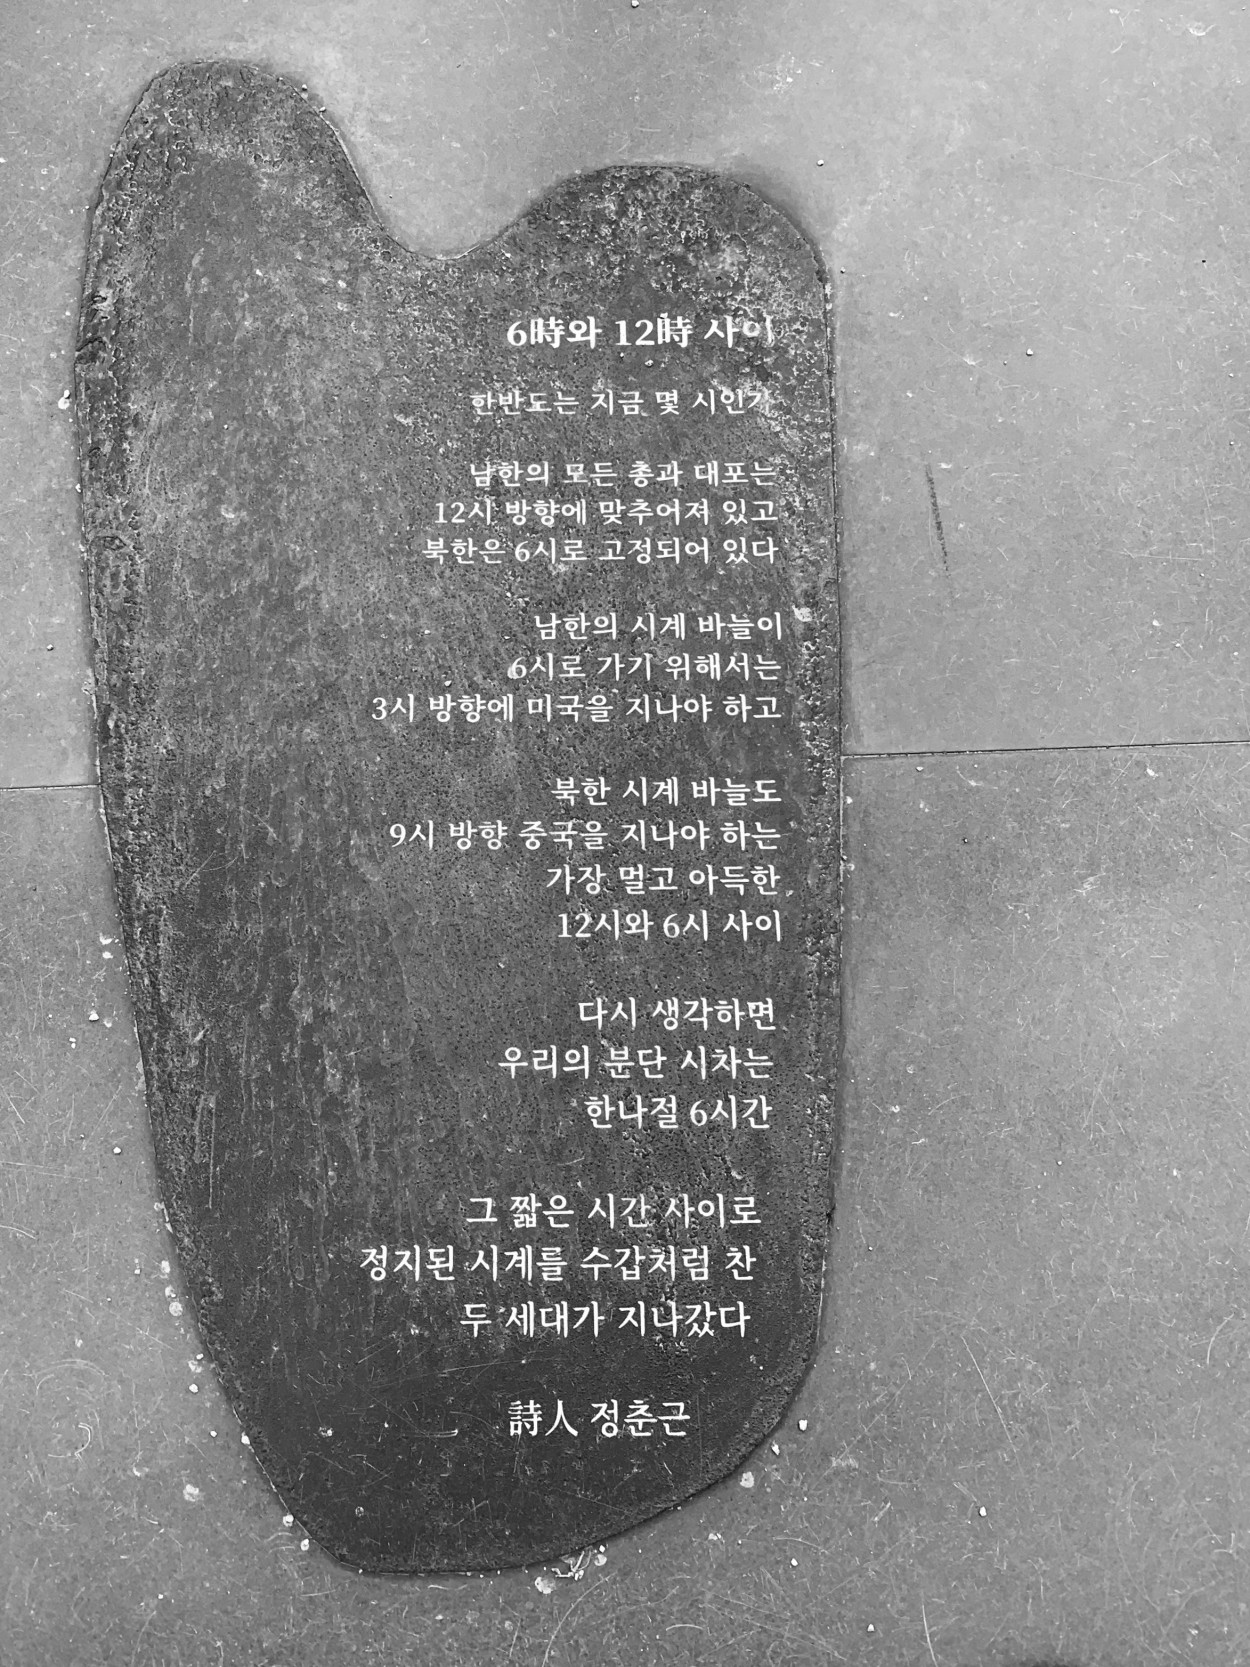 6時와 12時 사이
한반도는 지금 몇 시인가
남한의 모든 총과 대포는
12시 방향에 맞추어져 있고
북한은 6시로 고정되어 있다
남한의 시계 바늘이
6시로 가기 위해서는
3시 방향에 미국을 지나야 하고
북한 시계 바늘도
9시 방향 중국을 지나야 하는
가장 멀고 아득한
12시와 6시 사이
다시 생각하면
우리의 분단 시차는
한나절 6시간
그 짧은 시간 사이로
정지된 시계를 수갑처럼 찬
두 세대가 지나갔다
詩人 정춘근